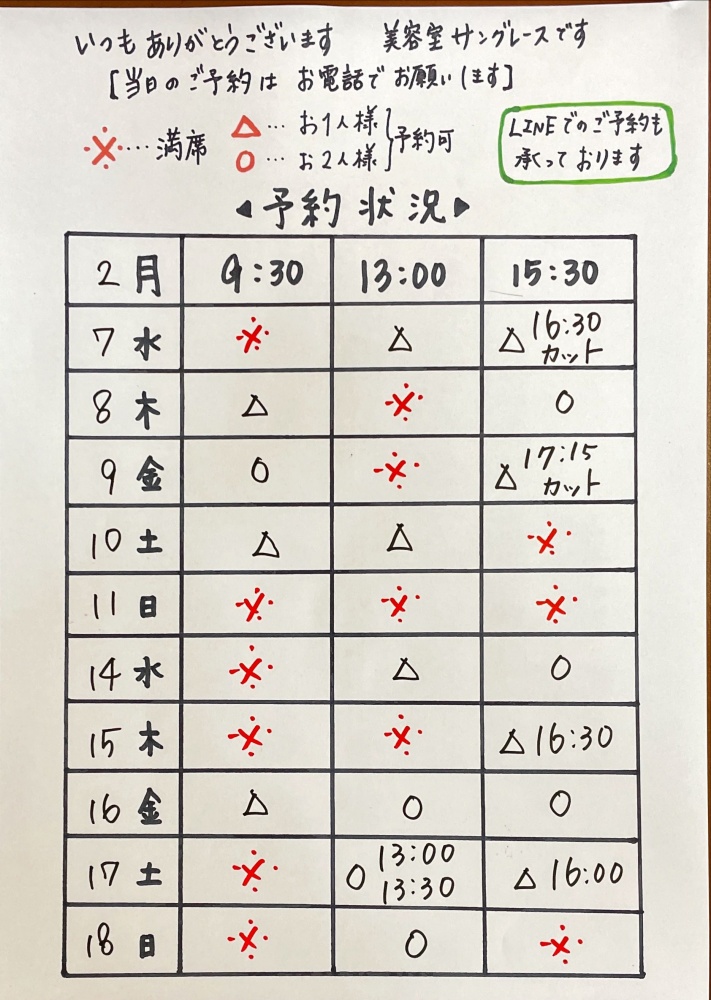 いつもありがとうございます 美容室サングレースです
[当日のご予約は お電話でお願いします]
※…満席
△…お1人様
○…お2人様
}予約可
LINEでのご予約も
承っております
◀予約状況▶
2月 9:30 13:00 15:30
7水 ※ △ △16:30カット
8木 △ ※ ○
9金 ○ ※ △17:15カット
10土 △ △ ※
11日 ※ ※ ※
14水 ※ △ ○
15木 ※ ※ △16:30
16金 △ ○ ○
17土 ※ ○13:00 13:30 △16:00
18日 ※ ○ ※